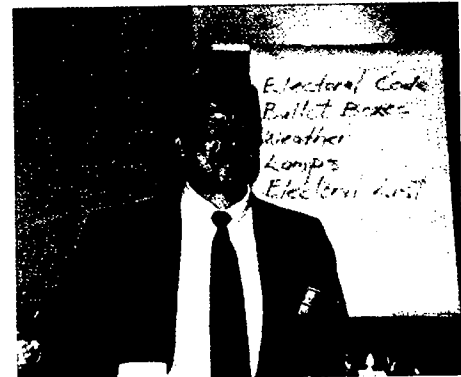 Electoral Code
Ballot Boxes
Weather
Lamps
Electoral List